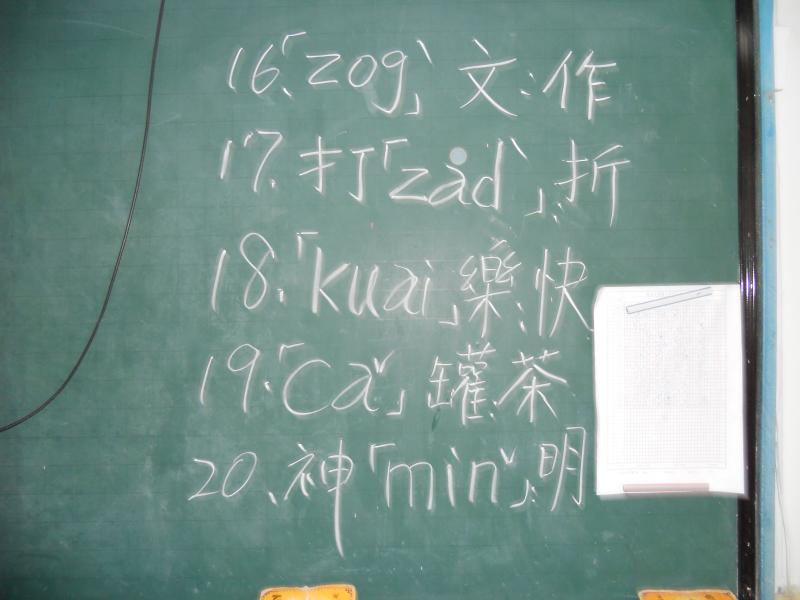 16、「zogˋ」文：作
17、打「zadˋ」：折
18、「kuai」樂：快
19、「caˇ」罐：茶
20、神「minˇ」：明